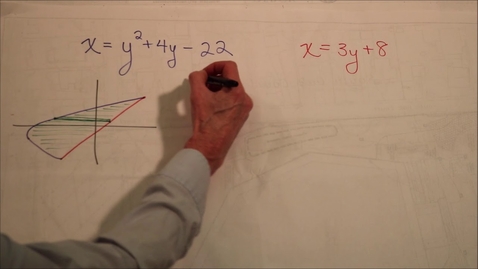 x = y² + 4y - 22
x = 3y + 8